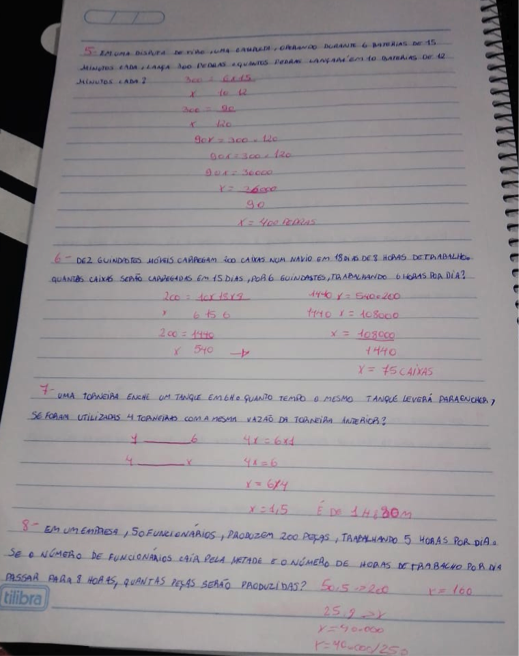 5- EM UMA DISPUTA DE TIRO, UMA CATAPULTA, OPERANDO DURANTE 6 BATERIAS DE 15
MINUTOS CADA, LANÇA 300 PEDRAS. QUANTAS PEDRAS LANÇARÁ EM 10 BATERIAS DE 12
MINUTOS CADA?
300 = 6x15
x 10 12
300 = 90
x 120
90x = 300 . 120
90x = 300 . 120
90x = 36000
x = 36000
90
x = 400 PEDRAS
6- DEZ GUINDASTES MÓVEIS CARREGAM 200 CAIXAS NUM NAVIO EM 18 DIAS DE 8 HORAS DE TRABALHO.
QUANTAS CAIXAS SERÃO CARREGADAS EM 15 DIAS, POR 6 GUINDASTES, TRABALHANDO 6 HORAS POR DIA?
200 = 10x18x8
x 6 15 6
200 = 1440
x 540
1440 x = 540x200
1440 x = 108000
x = 108000
1440
x = 75 CAIXAS
7- UMA TORNEIRA ENCHE UM TANQUE EM 6H. QUANTO TEMPO O MESMO TANQUE LEVARÁ PARA ENCHER,
SE FORAM UTILIZADAS 4 TORNEIRAS COM A MESMA VAZÃO DA TORNEIRA ANTERIOR?
1 6
4 x
4x = 6x1
4x = 6
x = 6x4
x = 1,5 É DE 1H:30M
8- EM UM EMPRESA, 50 FUNCIONÁRIOS, PRODUZEM 200 PEÇAS, TRABALHANDO 5 HORAS POR DIA.
SE O NÚMERO DE FUNCIONÁRIOS CAIR PELA METADE E O NÚMERO DE HORAS DE TRABALHO POR DIA
PASSAR PARA 8 HORAS, QUANTAS PEÇAS SERÃO PRODUZIDAS?
50.5 -> 200 x = 100
25.8 -> x
x = 40.000
x = 40.000/250
tilibra